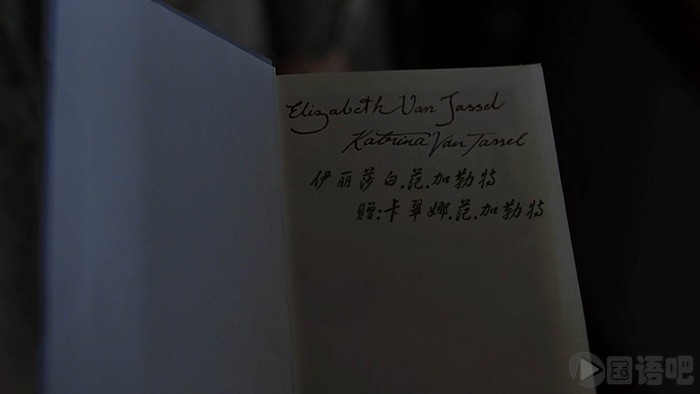 Elizabeth Van Tassel
Katrina Van Tassel
伊丽莎白.范.加勒特
赠:卡翠娜.范.加勒特
国语吧